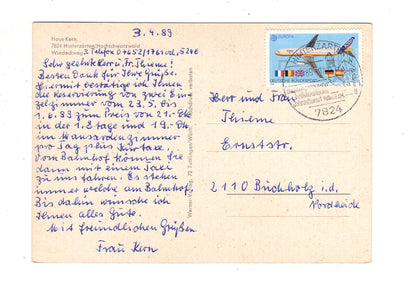 3.4.89
Haus Kern,
7824 Hinterzarten/Hochschwarzwald
Windeckweg 3, Telefon 07652/1761 od. 5248
Sehr geehrte Herr u. Fr. Thieme!
Besten Dank für Ihre Grüße.
Hiermit bestätige ich Ihnen
die Reservierung von zwei Ein
zelzimmer vom 23.5. bis
1.6.89 zum Preis von 21.- DM
in der 1. Etage und 19.- DM
im Mansardenzimmer
pro Tag plus Kurtaxe.
Vom Bahnhof können Sie
dann mit einem Taxi
zu uns fahren. Es stehen
immer welche am Bahnhof.
Bis dahin wünsche ich
Ihnen alles Gute.
Mit freundlichen Grüßen
Frau Kern
EUROPA
DEUTSCHE BUNDESPOST
HINTERZARTEN
7824
Herr und Frau
Thieme
Ernststr.
2110 Buchholz i.d.
Nordheide